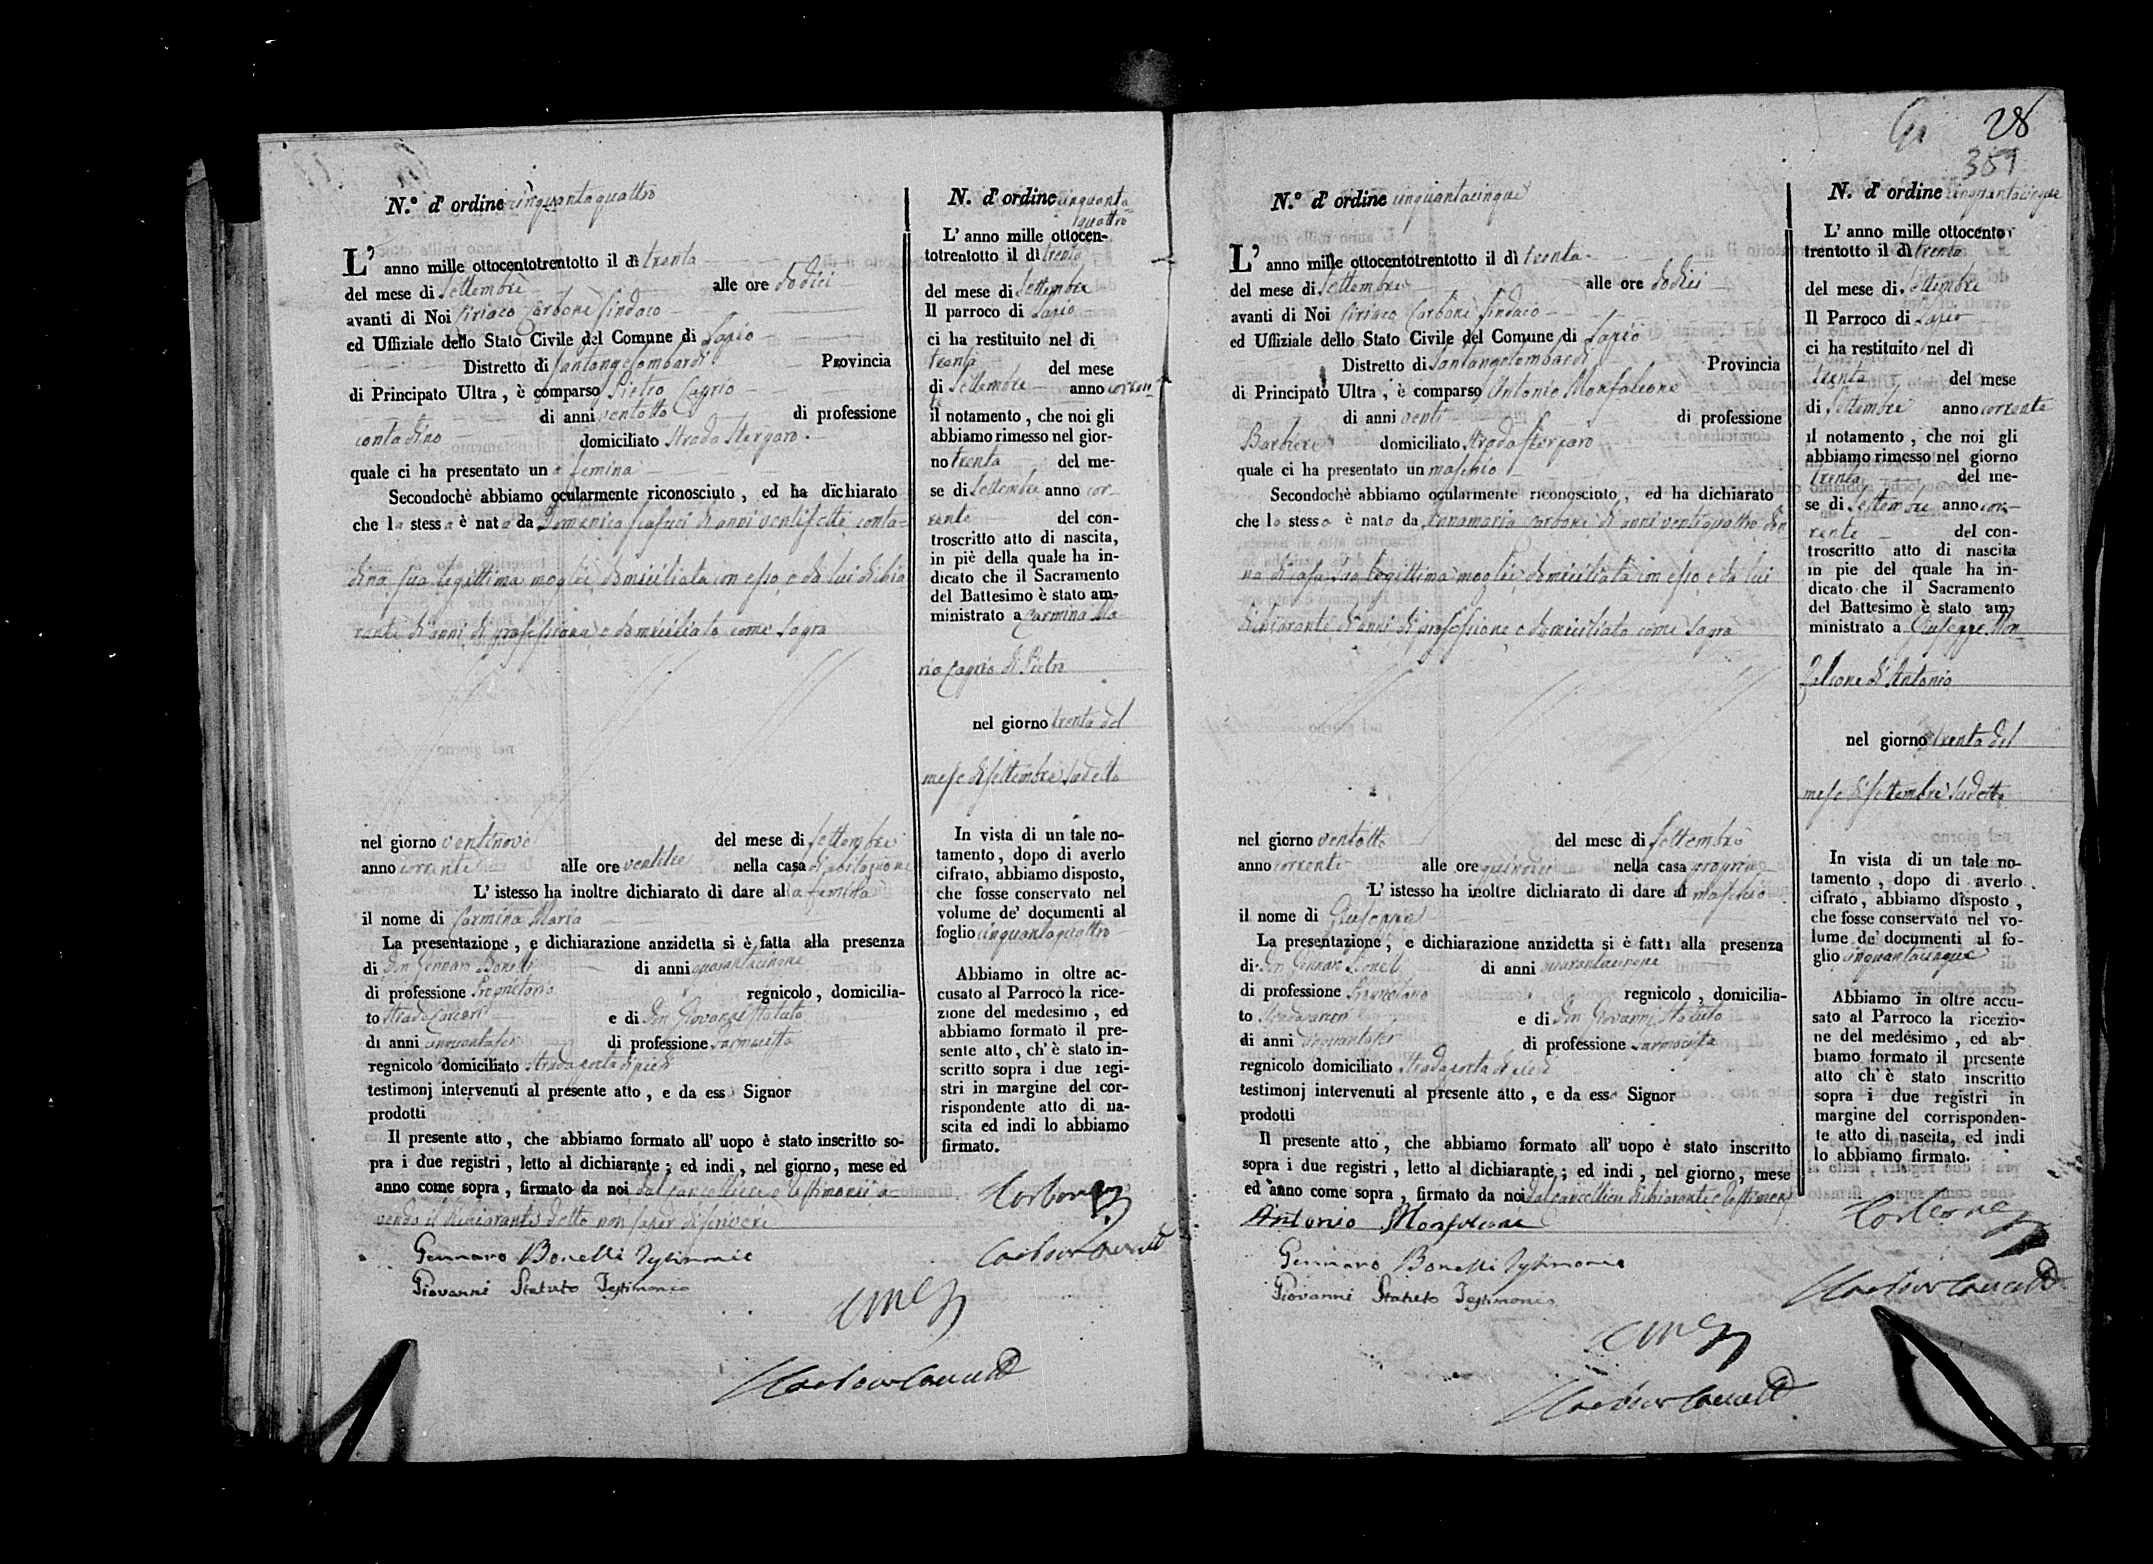 N.° d' ordine cinquantaquattro
L' anno mille ottocentotrentotto il dì trenta
del mese di Settembre alle ore dodici
avanti di Noi Ciriaco Carbone Sindaco
ed Uffiziale dello Stato Civile del Comune di Lapio
Distretto di Santangelombardi Provincia
di Principato Ultra, è comparso Pietro Caprio
di anni ventotto di professione
contadino domiciliato Strada Stergaro.
quale ci ha presentato una femina
Secondochè abbiamo ocularmente riconosciuto, ed ha dichiarato
che la stessa è nata da Domenica Scafuci di anni ventisette conta=
dina sua legittima moglie domiciliata con esso e da lui dichia
rante di anni di professione e domiciliato come sopra
nel giorno ventinove del mese di Settembre
anno corrente alle ore ventitre nella casa di abitazione
L' istesso ha inoltre dichiarato di dare alla femina
il nome di Carmina Maria
La presentazione, e dichiarazione anzidetta si è fatta alla presenza
di Don Gennaro Bonelli di anni quarantacinque
di professione Proprietario regnicolo, domicilia-
to Strada Carceri e di Don Giovanni Statuto
di anni cinquantasei di professione Farmacista
regnicolo domiciliato Strada porta di piedi
testimonj intervenuti al presente atto, e da esso Signor
prodotti
Il presente atto, che abbiamo formato all' uopo è stato inscritto so-
pra i due registri, letto al dichiarante; ed indi, nel giorno, mese ed
anno come sopra, firmato da noi dal cancelliere e testimonii a=
vendo il dichiarante detto non saper di scrivere
Gennaro Bonelli Testimonie
Giovanni Statuto Testimonio
N. d' ordine cinquanta=
quattro
L' anno mille ottocen-
totrentotto il dì trenta
del mese di Settembre
Il parroco di Lapio
ci ha restituito nel di
trenta del mese
di Settembre anno corren
te
il notamento, che noi gli
abbiamo rimesso nel gior-
no trenta del me-
se di Settembre anno cor-
rente del con-
troscritto atto di nascita,
in piè della quale ha in-
dicato che il Sacramento
del Battesimo è stato am-
ministrato a Carmina Ma-
ria Caprio di Pietro
nel giorno trenta del
mese di Settembre sudetto
In vista di un tale no-
tamento, dopo di averlo
cifrato, abbiamo disposto,
che fosse conservato nel
volume de' documenti al
foglio cinquantaquattro
Abbiamo in oltre ac-
cusato al Parroco la rice-
zione del medesimo, ed
abbiamo formato il pre-
sente atto, ch' è stato in-
scritto sopra i due regi-
stri in margine del cor-
rispondente atto di na-
scita ed indi lo abbiamo
firmato.
Carbone
28
351
N.° d' ordine cinquantacinque
L' anno mille ottocentotrentotto il dì trenta
del mese di Settembre alle ore dodici
avanti di Noi Ciriaco Carbone Sindaco
ed Uffiziale dello Stato Civile del Comune di Lapio
Distretto di Santangelombardi Provincia
di Principato Ultra, è comparso Antonio Monfalcone
di anni venti di professione
Barbiere domiciliato Strada Stergaro
quale ci ha presentato un maschio
Secondochè abbiamo ocularmente riconosciuto, ed ha dichiarato
che lo stesso è nato da Annamaria Carbone di anni ventiquattro don
na di casa sua legittima moglie domiciliata con esso e da lui
dichiarante di anni di professione e domiciliato come sopra
nel giorno ventotto del mese di Settembre
anno corrente alle ore quindici nella casa propria
L' istesso ha inoltre dichiarato di dare al maschio
il nome di Giuseppe
La presentazione, e dichiarazione anzidetta si è fatta alla presenza
di Don Gennaro Bonelli di anni quarantacinque
di professione Proprietario regnicolo, domicilia-
to Strada Carceri e di Don Giovanni Statuto
di anni cinquantasei di professione Farmacista
regnicolo domiciliato Strada porta di piedi
testimonj intervenuti al presente atto, e da esso Signor
prodotti
Il presente atto, che abbiamo formato all' uopo è stato inscritto
sopra i due registri, letto al dichiarante; ed indi, nel giorno, mese
ed anno come sopra, firmato da noi dal cancelliere dichiarante e testimonj
Antonio Monfalcone
Gennaro Bonelli Testimonie
Giovanni Statuto Testimonio
N. d' ordine cinquantacinque
L' anno mille ottocento
trentotto il dì trenta
del mese di Settembre
Il Parroco di Lapio
ci ha restituito nel dì
trenta del mese
di Settembre anno corrente
il notamento, che noi gli
abbiamo rimesso nel giorno
trenta del me-
se di Settembre anno cor-
rente del con-
troscritto atto di nascita
in pie del quale ha in-
dicato che il Sacramento
del Battesimo è stato am-
ministrato a Giuseppe Mon-
falcone di Antonio
nel giorno trenta del
mese di Settembre sudetto
In vista di un tale no-
tamento, dopo di averlo
cifrato, abbiamo disposto,
che fosse conservato nel vo-
lume de' documenti al fo-
glio cinquantacinque
Abbiamo in oltre accu-
sato al Parroco la ricezio-
ne del medesimo, ed ab-
biamo formato il presente
atto ch' è stato inscritto
sopra i due registri in
margine del corrisponden-
te atto di nascita, ed indi
lo abbiamo firmato.
Carbone